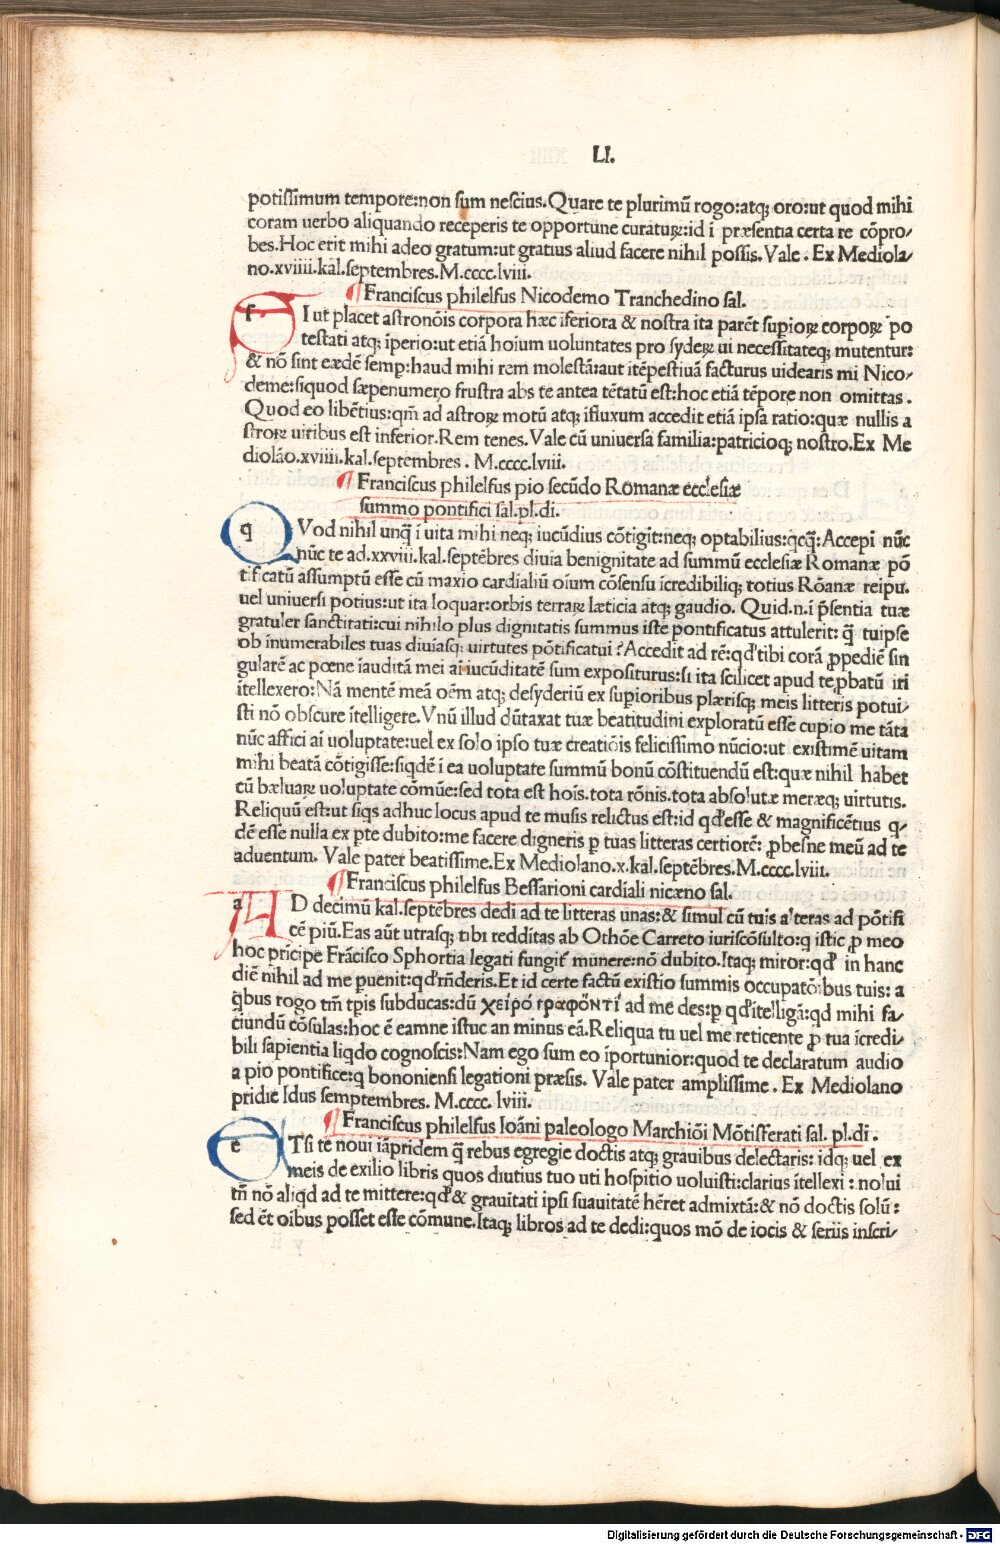 LI.
potissimum tempore:non sum nescius. Quare te plurimū rogo:atq; oro:ut quod mihi
coram uerbo aliquando receperis te opportune curaturꝫ:id ī præsentia certa re cōpro-
bes. Hoc erit mihi adeo gratum:ut gratius aliud facere nihil possis. Vale. Ex Mediola-
no.xviiii.kal.septembres. M.cccc.lviii.
¶ Franciscus philelfus Nicodemo Tranchedino sal.
f I ut placet astronōis corpora hæc īferiora & nostra ita parēt supioꝝ corpoꝝ po
testati atq; īperio:ut etiā hoium uoluntates pro syderꝝ ui necessitateq; mutentur:
& nō sint eædē semp:haud mihi rem molestā:aut itēpestiuā facturus uidearis mi Nico-
deme:siquod sæpenumero frustra abs te antea tētatū est:hoc etiā tēpore non omittas.
Quod eo libētius:qm̄ ad astroꝝ motū atq; īfluxum accedit etiā ipsa ratio:quæ nullis a
stroꝝ uiribus est inferior. Rem tenes. Vale cū uniuersa familia:patricioq; nostro. Ex Me
diolāo.xviiii.kal.septembres. M.cccc.lviii.
¶ Franciscus philelfus pio secūdo Romanæ ecclesiæ
summo pontifici sal.pl.di.
q Vod nihil unq̄ ī uita mihi neq; iucūdius cōtigit:neq; optabilius:qcq̄:Accepi nūc
nūc te ad.xxviii.kal.septēbres diuīa benignitate ad summū ecclesiæ Romanæ pō
tificatū assumptū esse cū maxīo cardialiū oīum cōsensu īcredibiliq; totius Rōanæ reipu.
uel uniuersi potius:ut ita loquar:orbis terraꝝ læticia atq; gaudio. Quid.n.ī p̄sentia tuæ
gratuler sanctitati:cui nihilo plus dignitatis summus iste pontificatus attulerit: q̄ tuipse
ob īnumerabiles tuas diuīasq; uirtutes pōtificatui? Accedit ad rē:qd̓ tibi corā ꝓpediē sin
gularē ac pœne īauditā mei aī iucūditatē sum expositurus:si ita scilicet apud te ꝓbatū iri
ītellexero:Nā mentē meā oēm atq; desyderiū ex supioribus plærisq; meis litteris potui-
sti nō obscure ītelligere. Vnū illud dūtaxat tuæ beatitudini exploratū esse cupio me tāta
nūc affici aī uoluptate:uel ex solo ipso tuæ creatiōis felicissimo nūcio:ut existimē uitam
mihi beatā cōtigisse:siqdē ī ea uoluptate summū bonū cōstituendū est:quæ nihil habet
cū bæluaꝝ uoluptate cōmūe:sed tota est hois.tota rōnis.tota absolutæ meræq; uirtutis.
Reliquū est:ut siqs adhuc locus apud te musis relictus est:id qd̓ esse & magnificētius q-
dē esse nulla ex pte dubito:me facere digneris p tuas litteras certiorē: ꝓbesne meū ad te
aduentum. Vale pater beatissime. Ex Mediolano.x.kal.septēbres. M.cccc.lviii.
¶ Franciscus philelfus Bessarioni cardiali nicæno sal.
a D decimū kal.septēbres dedi ad te litteras unas:& simul cū tuis alteras ad pōtifi
cē piū. Eas aūt utrasq; tibi redditas ab Othōe Carreto iuriscōsulto:q istic ꝓ meo
hoc prīcipe Frācisco Sphortia legati fungit̄ munere:nō dubito. Itaq; miror:qd̓ in hanc
diē nihil ad me puenit:qd̓ rn̄deris. Et id certe factū existīo summis occupatōibus tuis: a
q̄bus rogo tm̄ tpis subducas:dū χειρόγραφόντι ad me des:p qd̓ ītelligā:qd mihi fa-
ciundū cōsulas:hoc ē eamne istuc an minus eā. Reliqua tu uel me reticente ꝓ tua īcredi-
bili sapientia liqdo cognoscis:Nam ego sum eo īportunior:quod te declaratum audio
a pio pontifice:q bononiensi legationi præsis. Vale pater amplissime. Ex Mediolano
pridie Idus semptembres. M.cccc.lviii.
¶ Franciscus philelfus Ioāni paleologo Marchiōi Mōtisferati sal. pl.di.
e Tsi te noui iāpridem q̄ rebus egregie doctis atq; grauibus delectaris: idq; uel ex
meis de exilio libris quos diutius tuo uti hospitio uoluisti:clarius ītellexi: nolui
tn̄ nō aliqd ad te mittere:qd̓ & grauitati ipsi suauitatē hēret admixtā:& nō doctis solū:
sed ēt oibus posset esse cōmune. Itaq; libros ad te dedi:quos mō de iocis & seriis inscri-
Digitalisierung gefördert durch die Deutsche Forschungsgemeinschaft - DFG